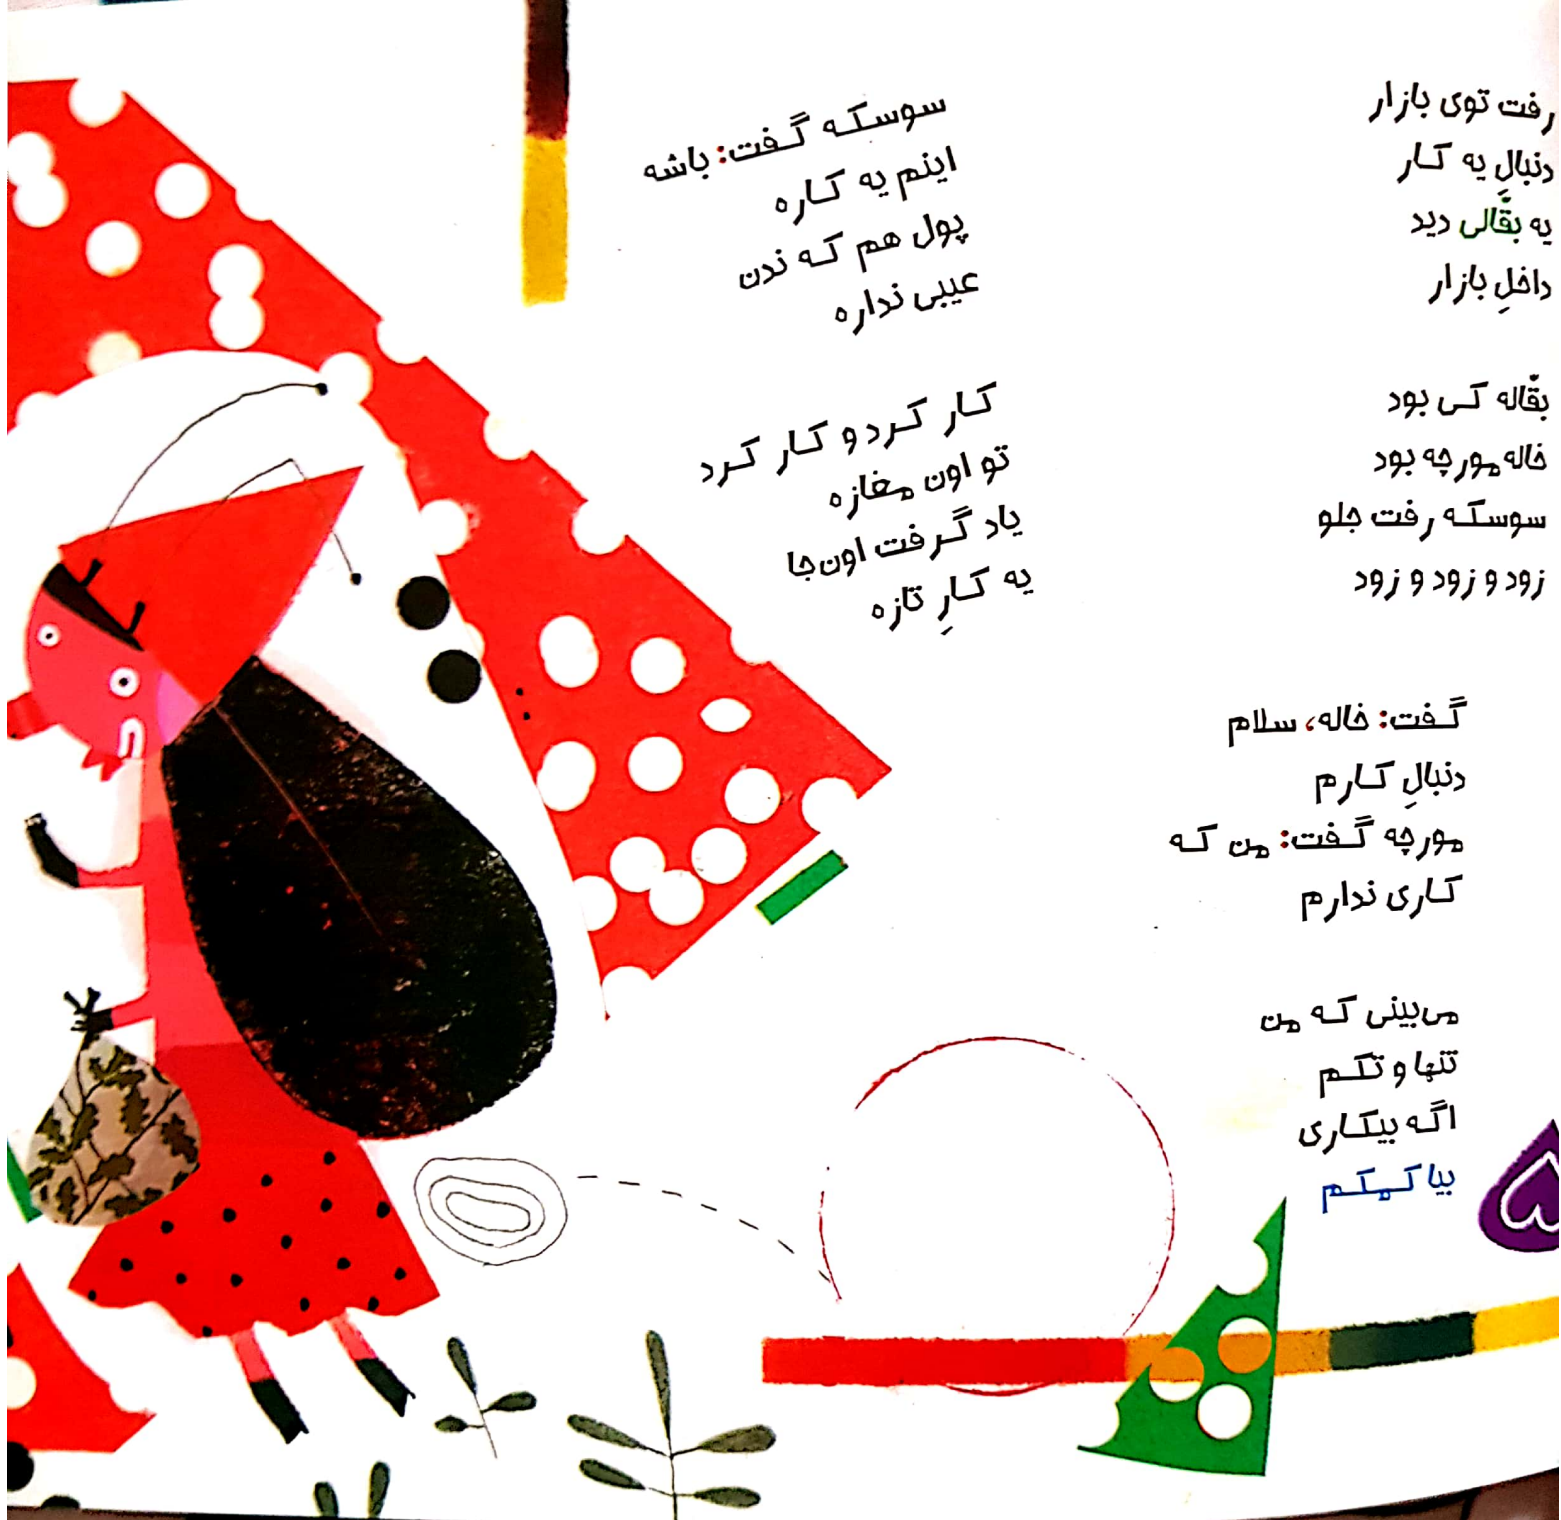 رفت توی بازار
دنبالِ یه کار
یه بقّالی دید
داخلِ بازار
بقّاله کی بود
خاله مورچه بود
سوسکه رفت جلو
زود و زود و زود
گفت: خاله، سلام
دنبالِ کارم
مورچه گفت: من که
کاری ندارم
می‌بینی که من
تنها و تکم
اگه بیکاری
بیا کمکم
سوسکه گفت: باشه
اینم یه کاره
پول هم که ندن
عیبی نداره
کار کرد و کار کرد
تو اون مغازه
یاد گرفت اون‌جا
یه کارِ تازه